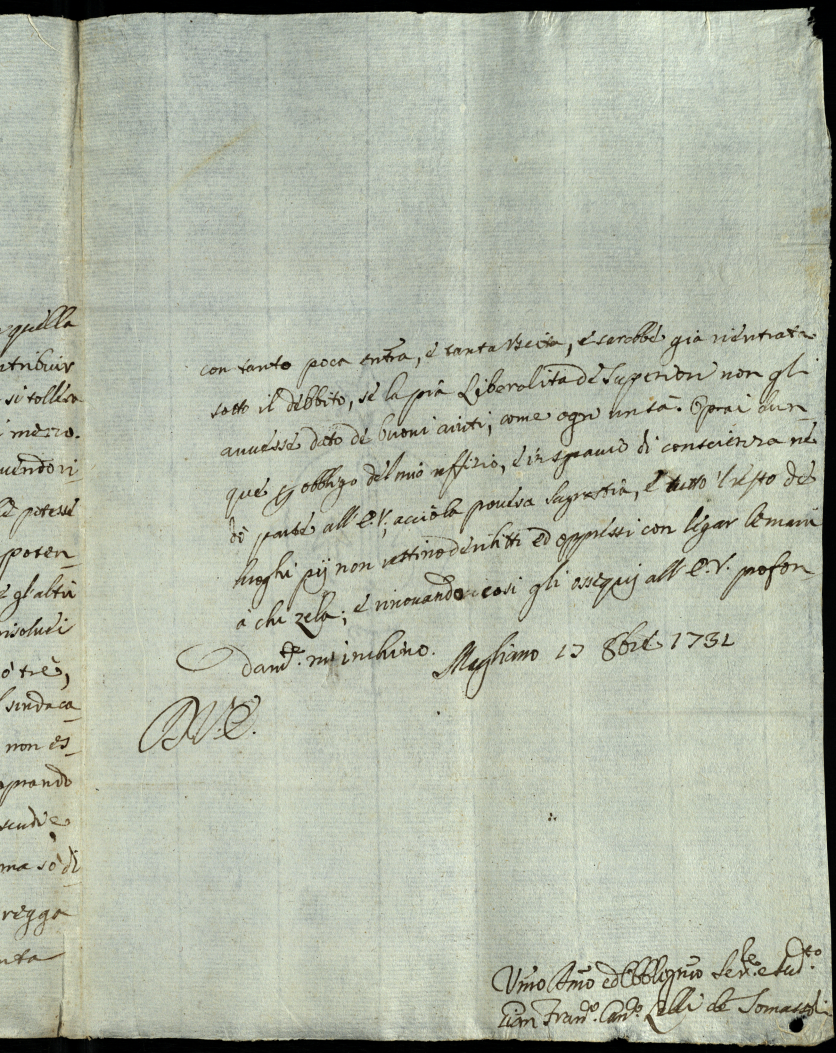 quella
ntribuir
si tollera
mezzo.
vendori-
le potesse
poten-
e gl'altri
risoluti
ò tré,
sindaca-
non es-
prando
scudi e
ma sò di
regga
nta
con tanto poca entra, e tanta uscita, e sarebbe già rientrata
sotto il debbito, se la pia Liberalità de Superiori non gli
auuesse dato de buoni aiuti; come ogn'un sà.
que obbligo del mio uffizio, e in sgrauio di conscienza né
dò parte all'E.V., acciò la pouera Sagrestia, e tutto 'l resto de
luoghi pij non restino derelitti ed oppressi con legar le mani
à chi zela; e rinouando così gli ossequij all'E.V. profon-
dam.te m'inchino.
Magliano 17 8bre 1731
D.V.E.
Vmo Dmo ed Obblig.mo Ser.e
Gian Fran.co Can.co Lelli de